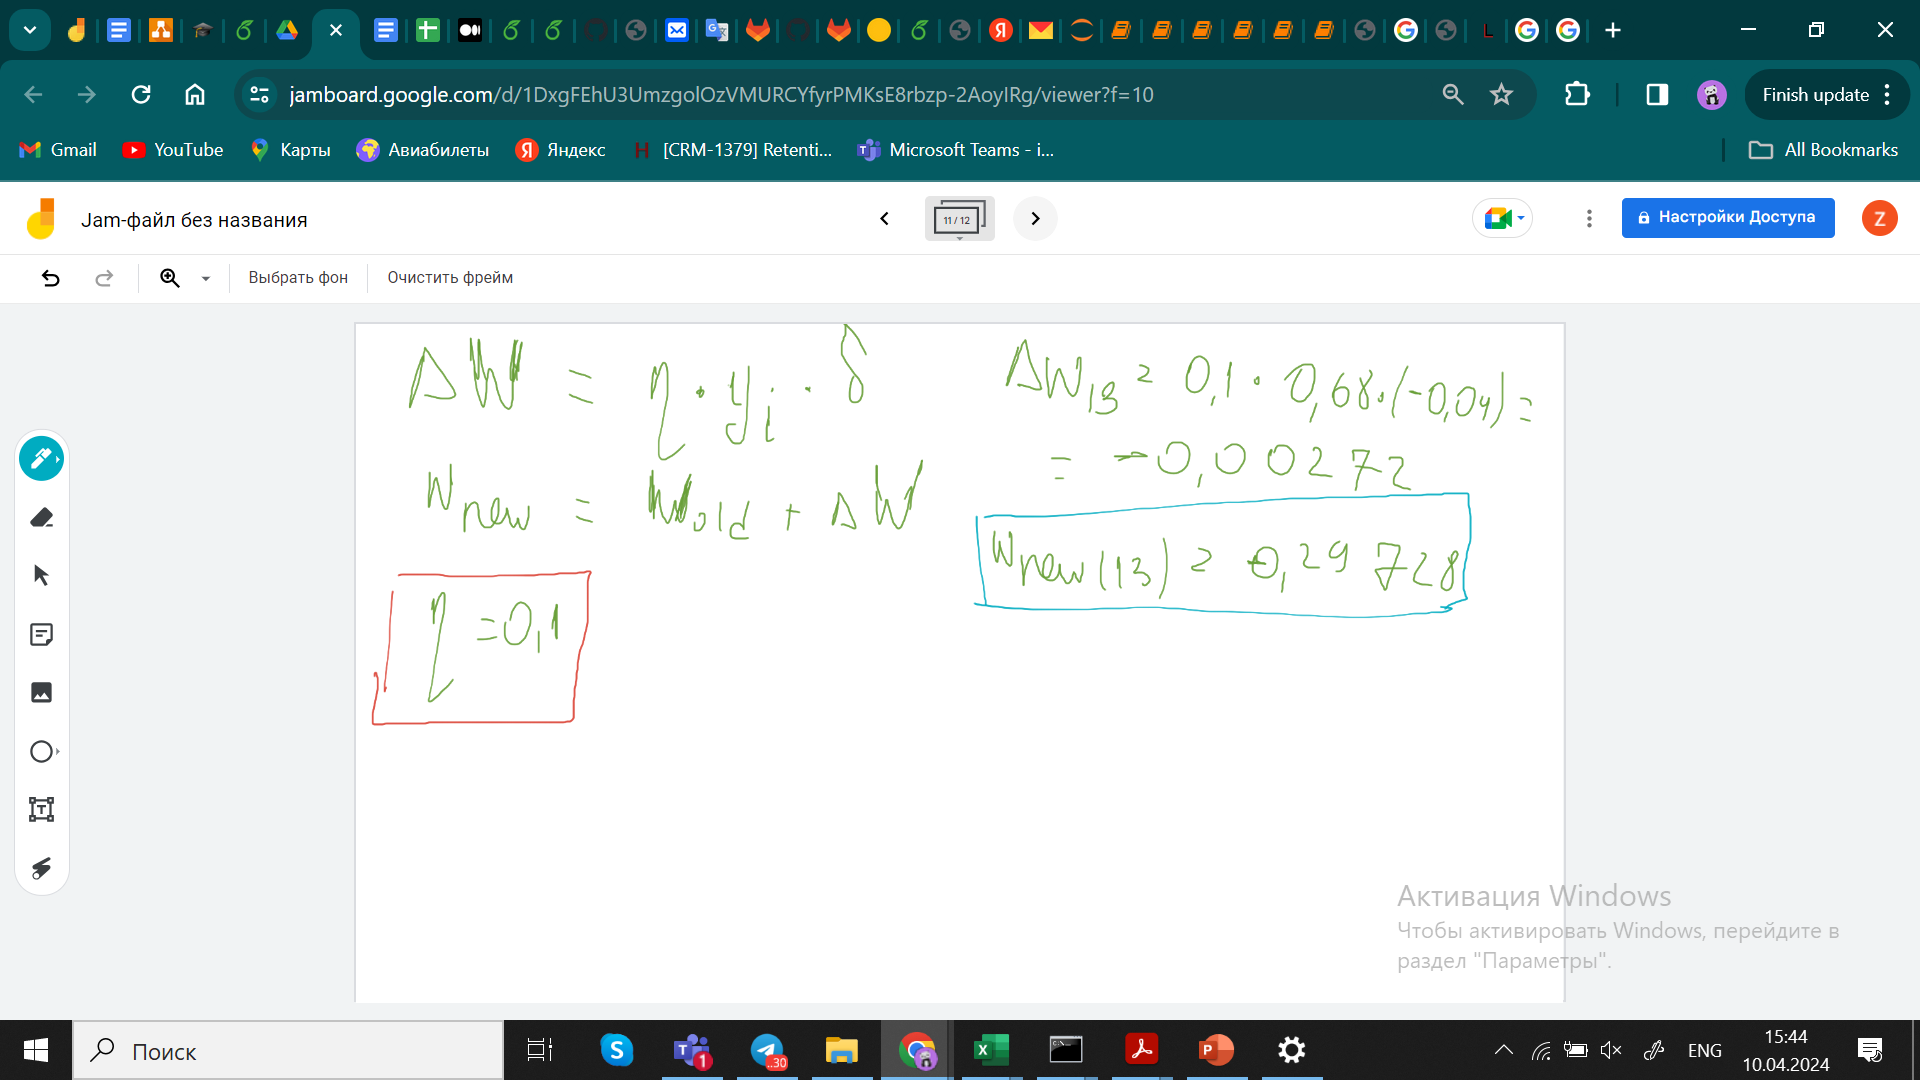 jamboard.google.com/d/1DxgFEhU3UmzgolOzVMURCYfyrPMKsE8rbzp-2AoylRg/viewer?f=10
Finish update
Gmail
YouTube
Карты
Авиабилеты
Яндекс
[CRM-1379] Retenti...
Microsoft Teams - i...
All Bookmarks
Jam-файл без названия
11 / 12
Настройки Доступа
Z
Выбрать фон
Очистить фрейм
ΔW = η · yi · δ
Wnew = Wold + ΔW
η = 0,1
ΔW13 = 0,1 · 0,68 · (-0,04) =
= -0,00272
Wnew(13) = 0,29728
Активация Windows
Чтобы активировать Windows, перейдите в
раздел "Параметры".
Поиск
1
..30
ENG
15:44
10.04.2024